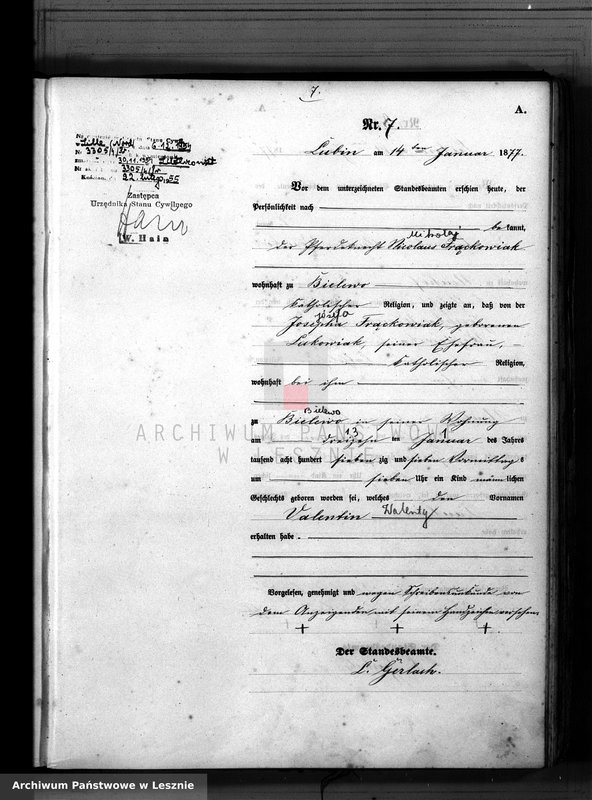 7.
A.
Nr. 7.
Lubin am 14 ten Januar 1877.
Lille (Nord)
3305/4/
30.11.
3305/4/
22. lutego 55
Zastępca
Urzędnika Stanu Cywilnego
W. Hain
Vor dem unterzeichneten Standesbeamten erschien heute, der
Persönlichkeit nach
bekannt,
Mikołaj
der Pferdeknecht Nicolaus Frąckowiak
wohnhaft zu Bielewo
katholischer Religion, und zeigte an, daß von der
Józefa
Josepha Frąckowiak, geborenen
Lukowiak, seiner Ehefrau,
katholischer Religion,
wohnhaft bei ihm
Bielewo
zu Bielewo in seiner Wohnung
13 1
am dreizehn ten Januar des Jahres
tausend acht hundert siebenzig und sieben Vormittags
um sieben Uhr ein Kind männlichen
Geschlechts geboren worden sei, welches den Vornamen
Valentin Walenty
erhalten habe.
Vorgelesen, genehmigt und wegen Schreibensunkunde von
dem Anzeigenden mit seinem Handzeichen versehen
+ + +
Der Standesbeamte.
L. Gerlach.
ARCHIWUM PAŃSTWOWE
W LESZNIE
Archiwum Państwowe w Lesznie